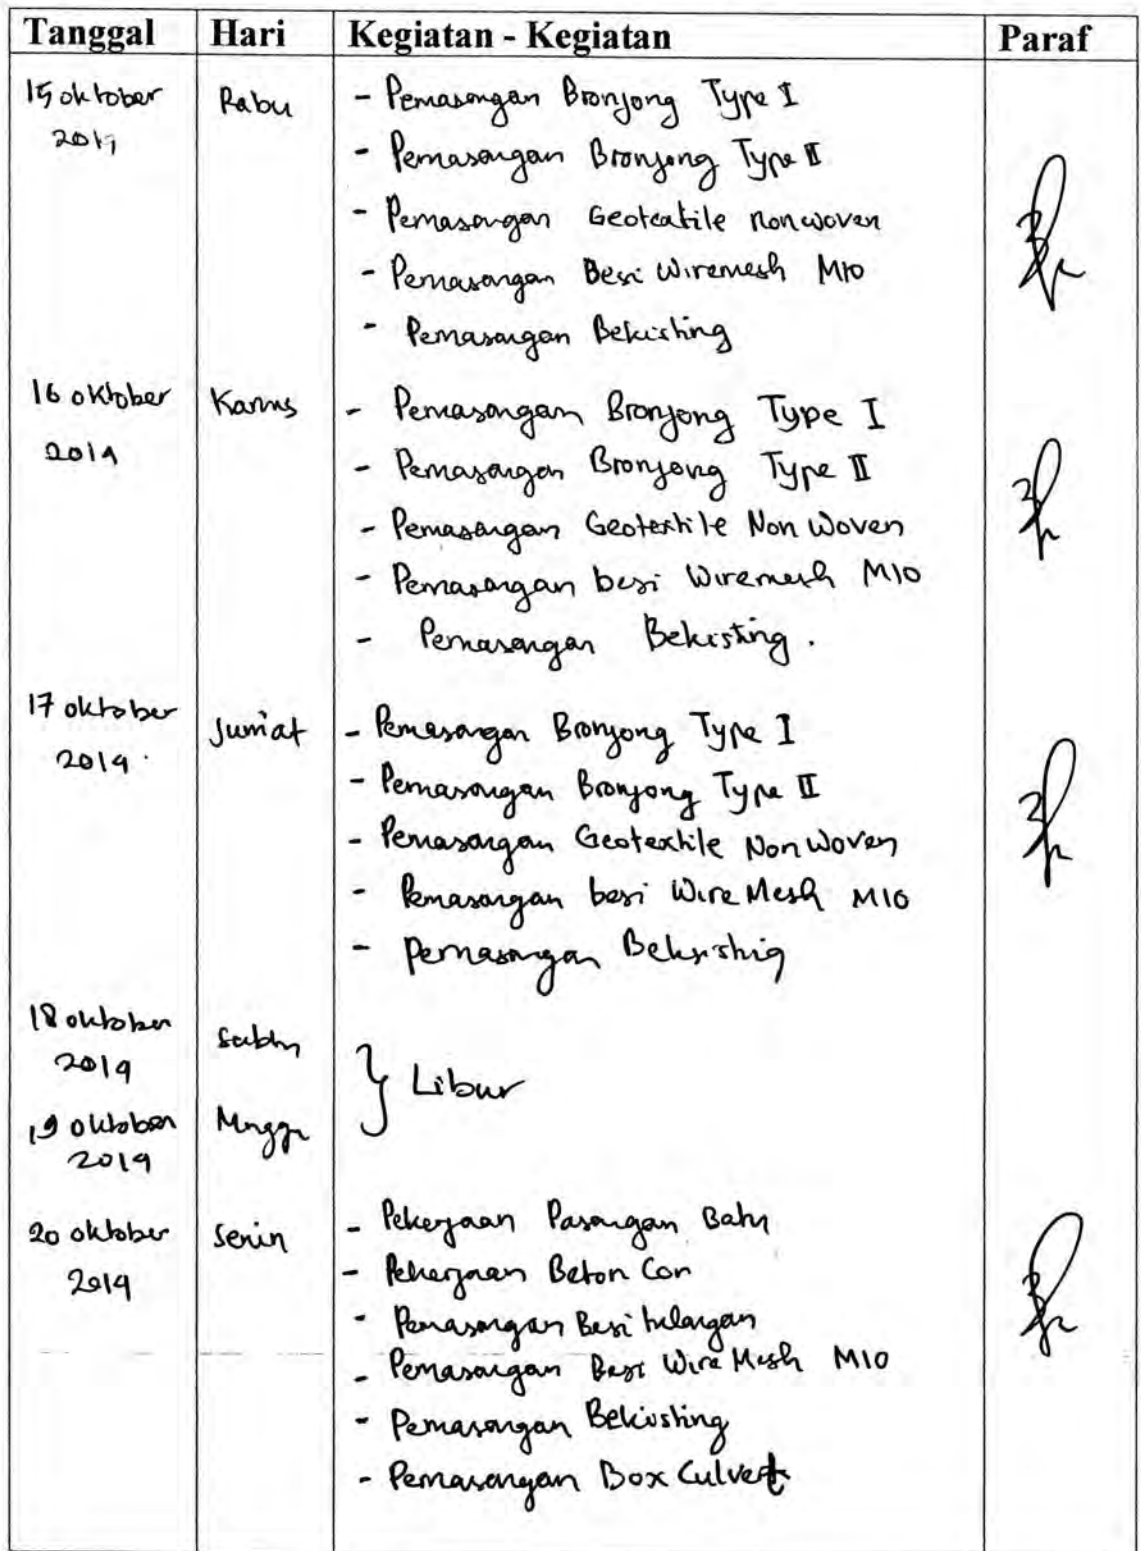 Tanggal Hari Kegiatan - Kegiatan Paraf
15 oktober Rabu - Pemasangan Bronjong Type I
2019 - Pemasangan Bronjong Type II
- Pemasangan Geoteatile nonwoven
- Pemasangan Besi Wiremesh M10
- Pemasangan Bekisting
16 oktober Kamis - Pemasangan Bronjong Type I
2019 - Pemasangan Bronjong Type II
- Pemasangan Geotextile Non Woven
- Pemasangan besi Wiremesh M10
- Pemasangan Bekisting.
17 oktober Jum'at - Pemasangan Bronjong Type I
2019. - Pemasangan Bronjong Type II
- Pemasangan Geotextile Non Woven
- Pemasangan besi Wire Mesh M10
- Pemasangan Bekisting
18 oktober Sabtu
2019 } Libur
19 oktober Minggu
2019
20 oktober Senin - Pekerjaan Pasangan Batu
2019 - Pekerjaan Beton Cor
- Pemasangan Besi tulangan
- Pemasangan Besi Wire Mesh M10
- Pemasangan Bekisting
- Pemasangan Box Culvert